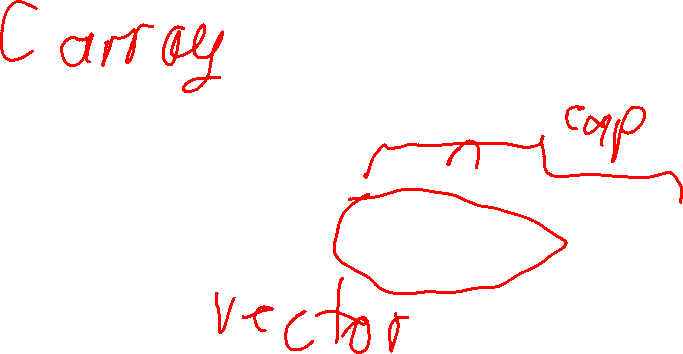 C array
cap
n
vector